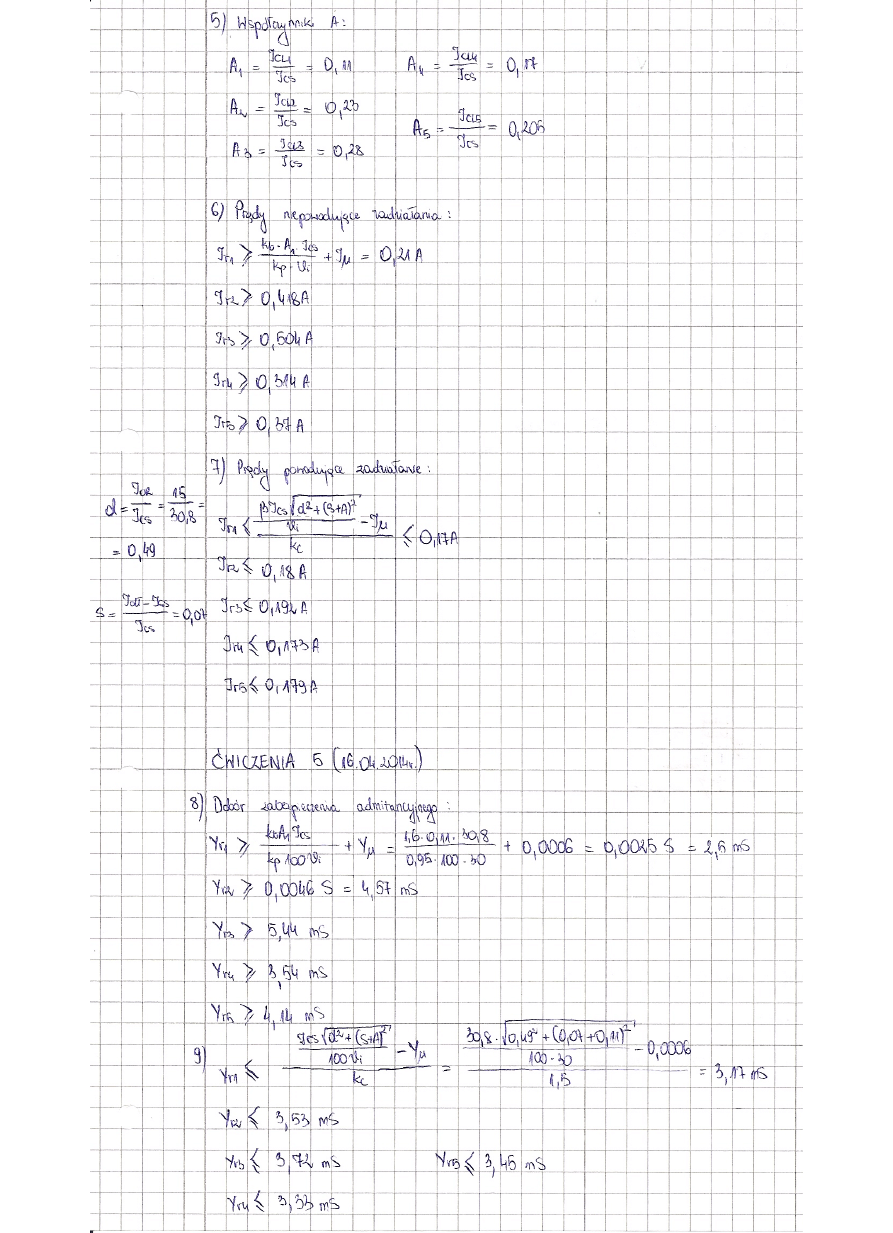 5) Współczynniki A:
A₁ = Jcl1/Jcs = 0,11
A₄ = Jcl4/Jcs = 0,17
A₂ = Jcl2/Jcs = 0,23
A₅ = Jcl5/Jcs = 0,206
A₃ = Jcl3/Jcs = 0,28
6) Prądy niepowodujące zadziałania:
Jr1 ⩾ kb·A₁·Jcs / kp·ϑi + Jμ = 0,21A
Jr2 ⩾ 0,418A
Jr3 ⩾ 0,504A
Jr4 ⩾ 0,314A
Jr5 ⩾ 0,37A
7) Prądy powodujące zadziałanie:
d = /Jcs = 15/30,8 =
= 0,49
Jr1 ⩽ (βJcs√(d²+(s+A)²)/ϑi - Jμ)/kc ⩽ 0,17A
Jr2 ⩽ 0,18A
s = /Jcs = 0,07
Jr3 ⩽ 0,192A
Jr4 ⩽ 0,173A
Jr5 ⩽ 0,179A
ĆWICZENIA 5 (16.04.2014r.)
8) Dobór zabezpieczenia admitancyjnego:
Yr1 ⩾ kbA₁Jcs / kp100ϑi + Yμ = 1,6·0,11·30,8 / 0,95·100·30 + 0,0006 = 0,0025 S = 2,5 mS
Yr2 ⩾ 0,0046 S = 4,57 mS
Yr3 ⩾ 5,44 mS
Yr4 ⩾ 3,54 mS
Yr5 ⩾ 4,14 mS
9) Yr1 ⩽ (Jcs√(d²+(s+A)²)/100ϑi - Yμ)/kc = (30,8·√(0,49²+(0,07+0,11)²)/100·30 - 0,0006)/1,5 = 3,17 mS
Yr2 ⩽ 3,53 mS
Yr3 ⩽ 3,72 mS
Yr5 ⩽ 3,45 mS
Yr4 ⩽ 3,33 mS